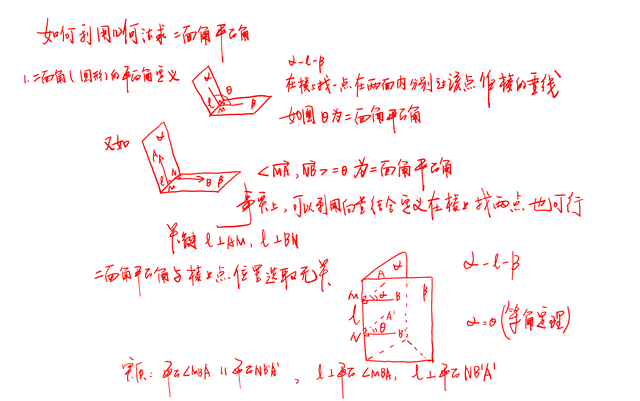 如何利用几何法求二面角平面角
1.二面角(图形)的平面角定义
α-l-β
在棱上找一点在两面内分别过该点作棱的垂线
如图θ为二面角平面角
α
θ
l
M
β
又如
α
A
N
l
M
θ
B
β
<MA, NB>=θ为二面角平面角
事实上,可以利用向量结合定义在棱上找两点也可行
关键 l⊥AM, l⊥BN
二面角平面角与棱上点位置选取无关
A
α
M
α
B
β
l
A'
N
θ
B'
α-l-β
α=θ(等角定理)
实质:平面<MBA // 平面NB'A', l⊥平面<MBA, l⊥平面NB'A'